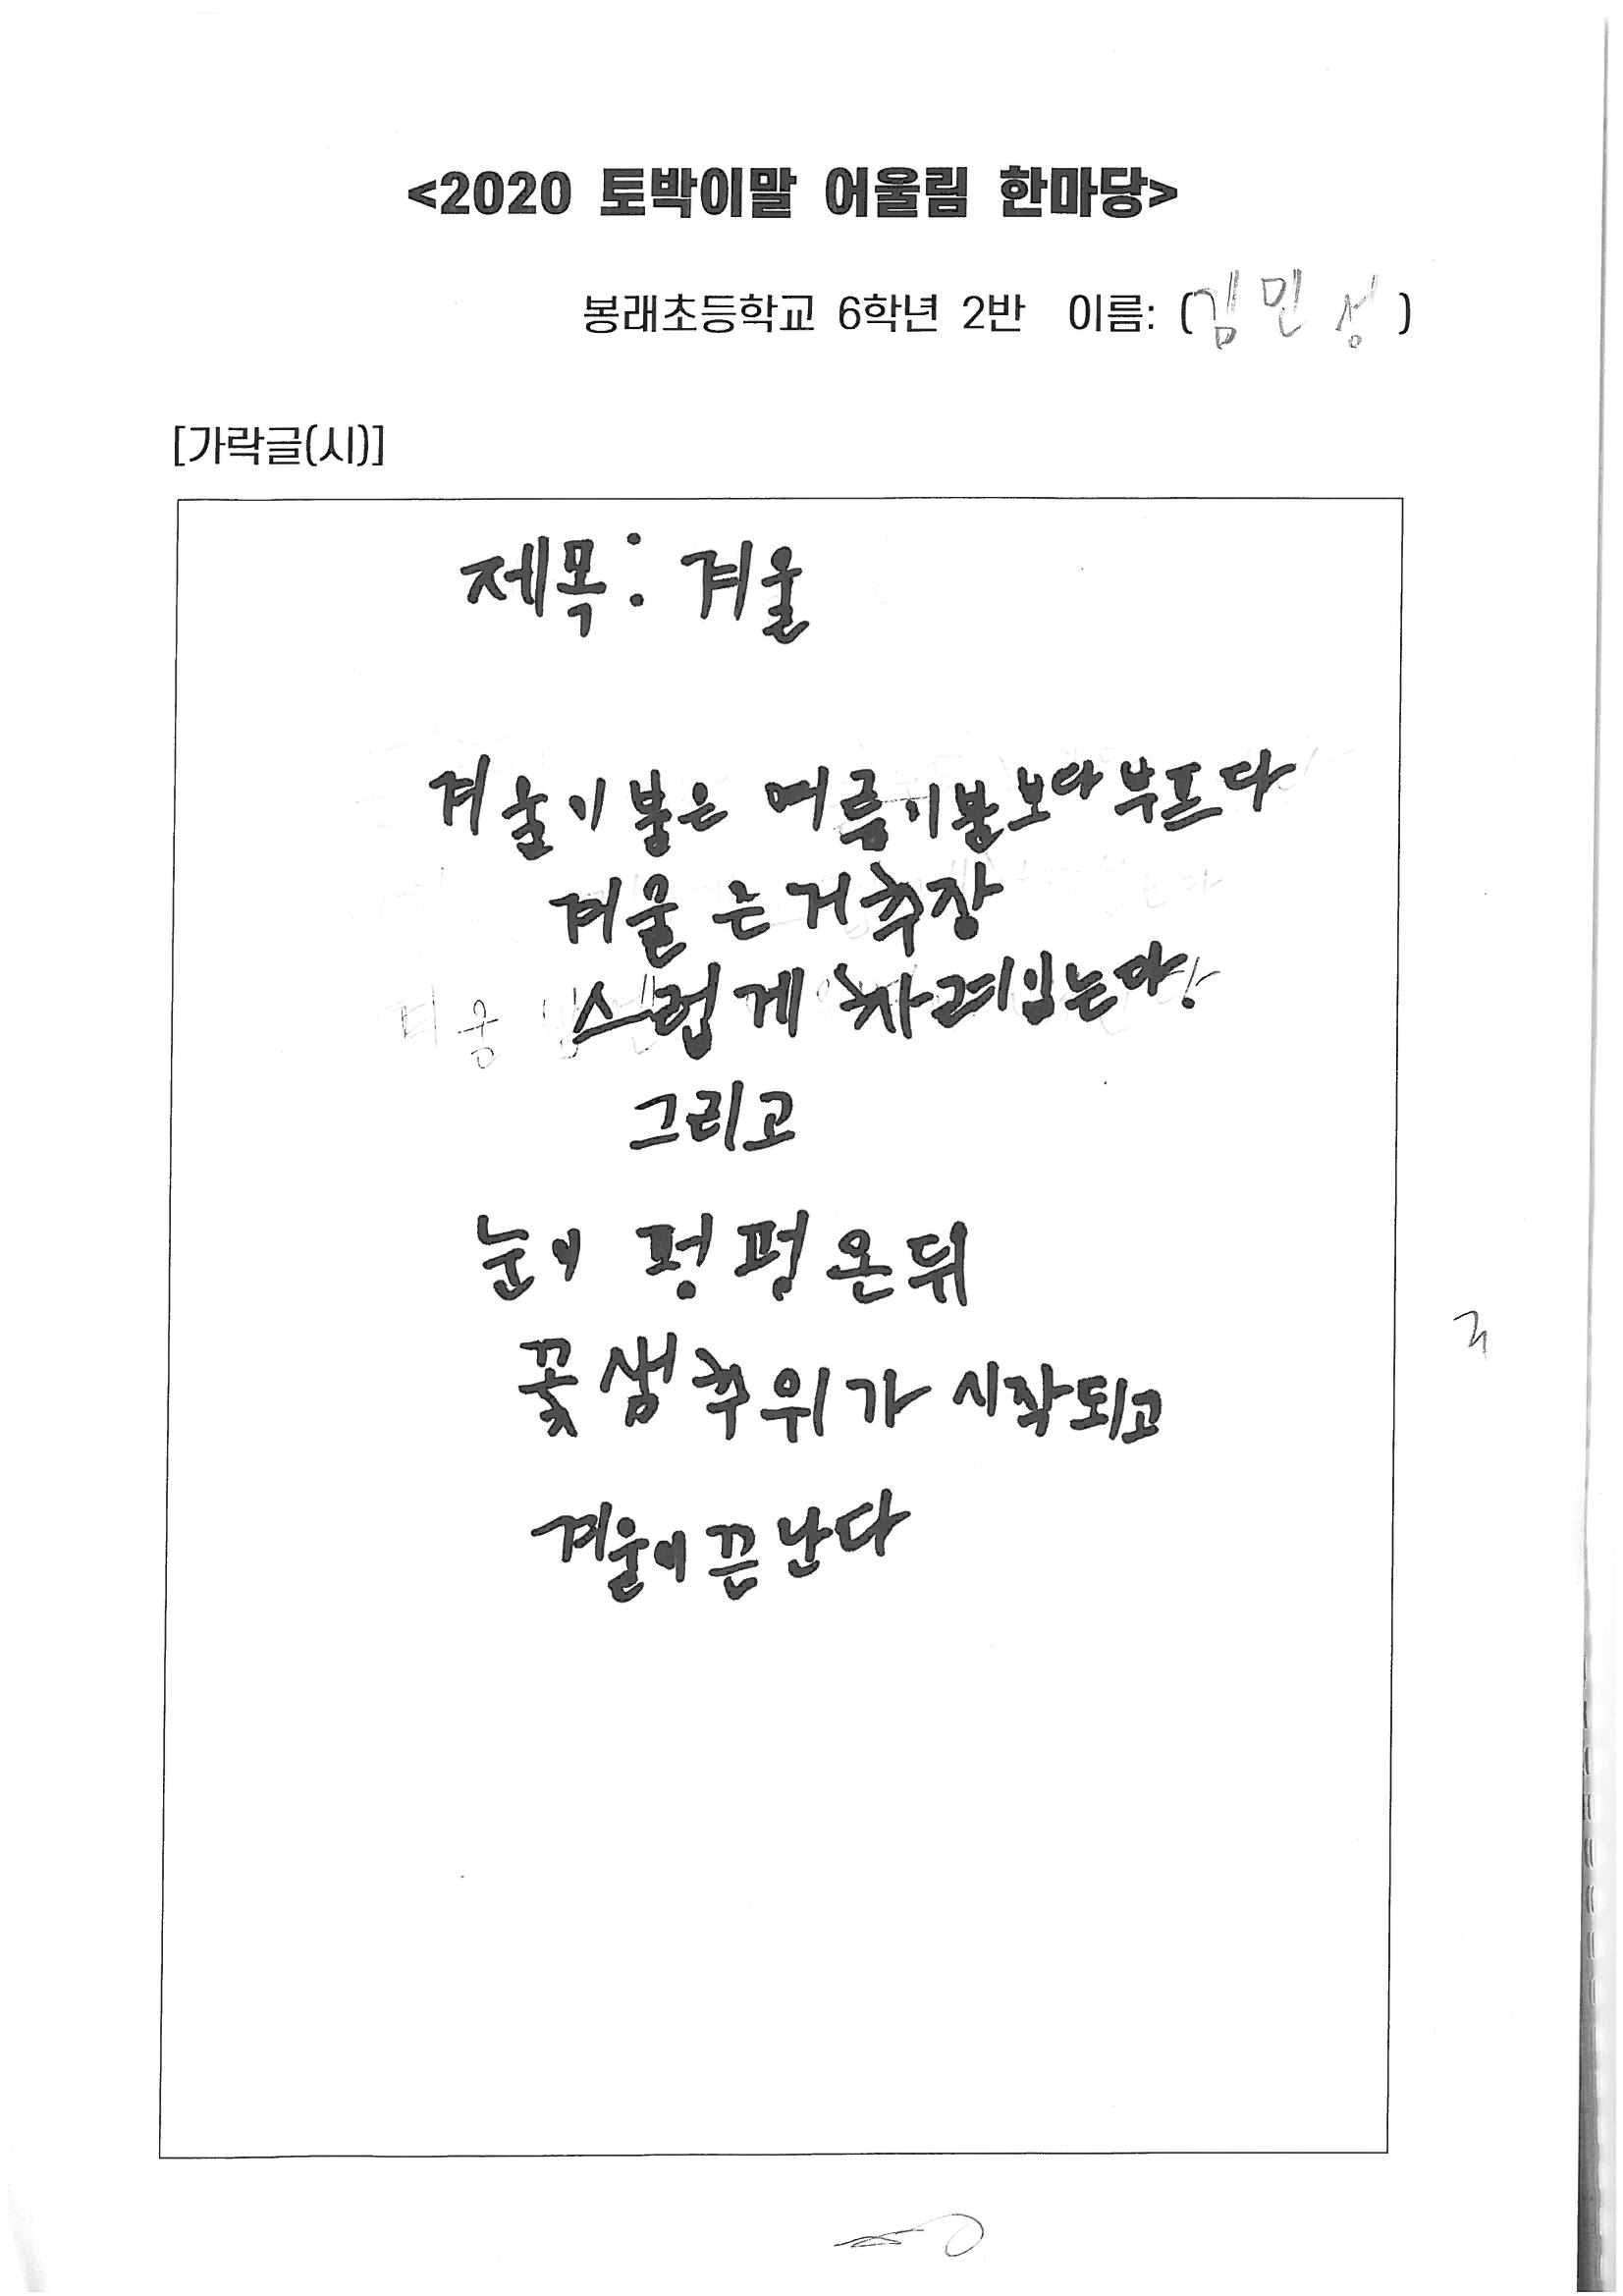 <2020 토박이말 어울림 한마당>
봉래초등학교 6학년 2반 이름: (김민성)
[가락글(시)]
제목: 겨울
겨울이불은 여름이불보다 부프다
겨울은 거추장
스럽게 차려입는다.
그리고
눈이 펑펑 온뒤
꽃샘추위가 시작되고
겨울이 끈난다